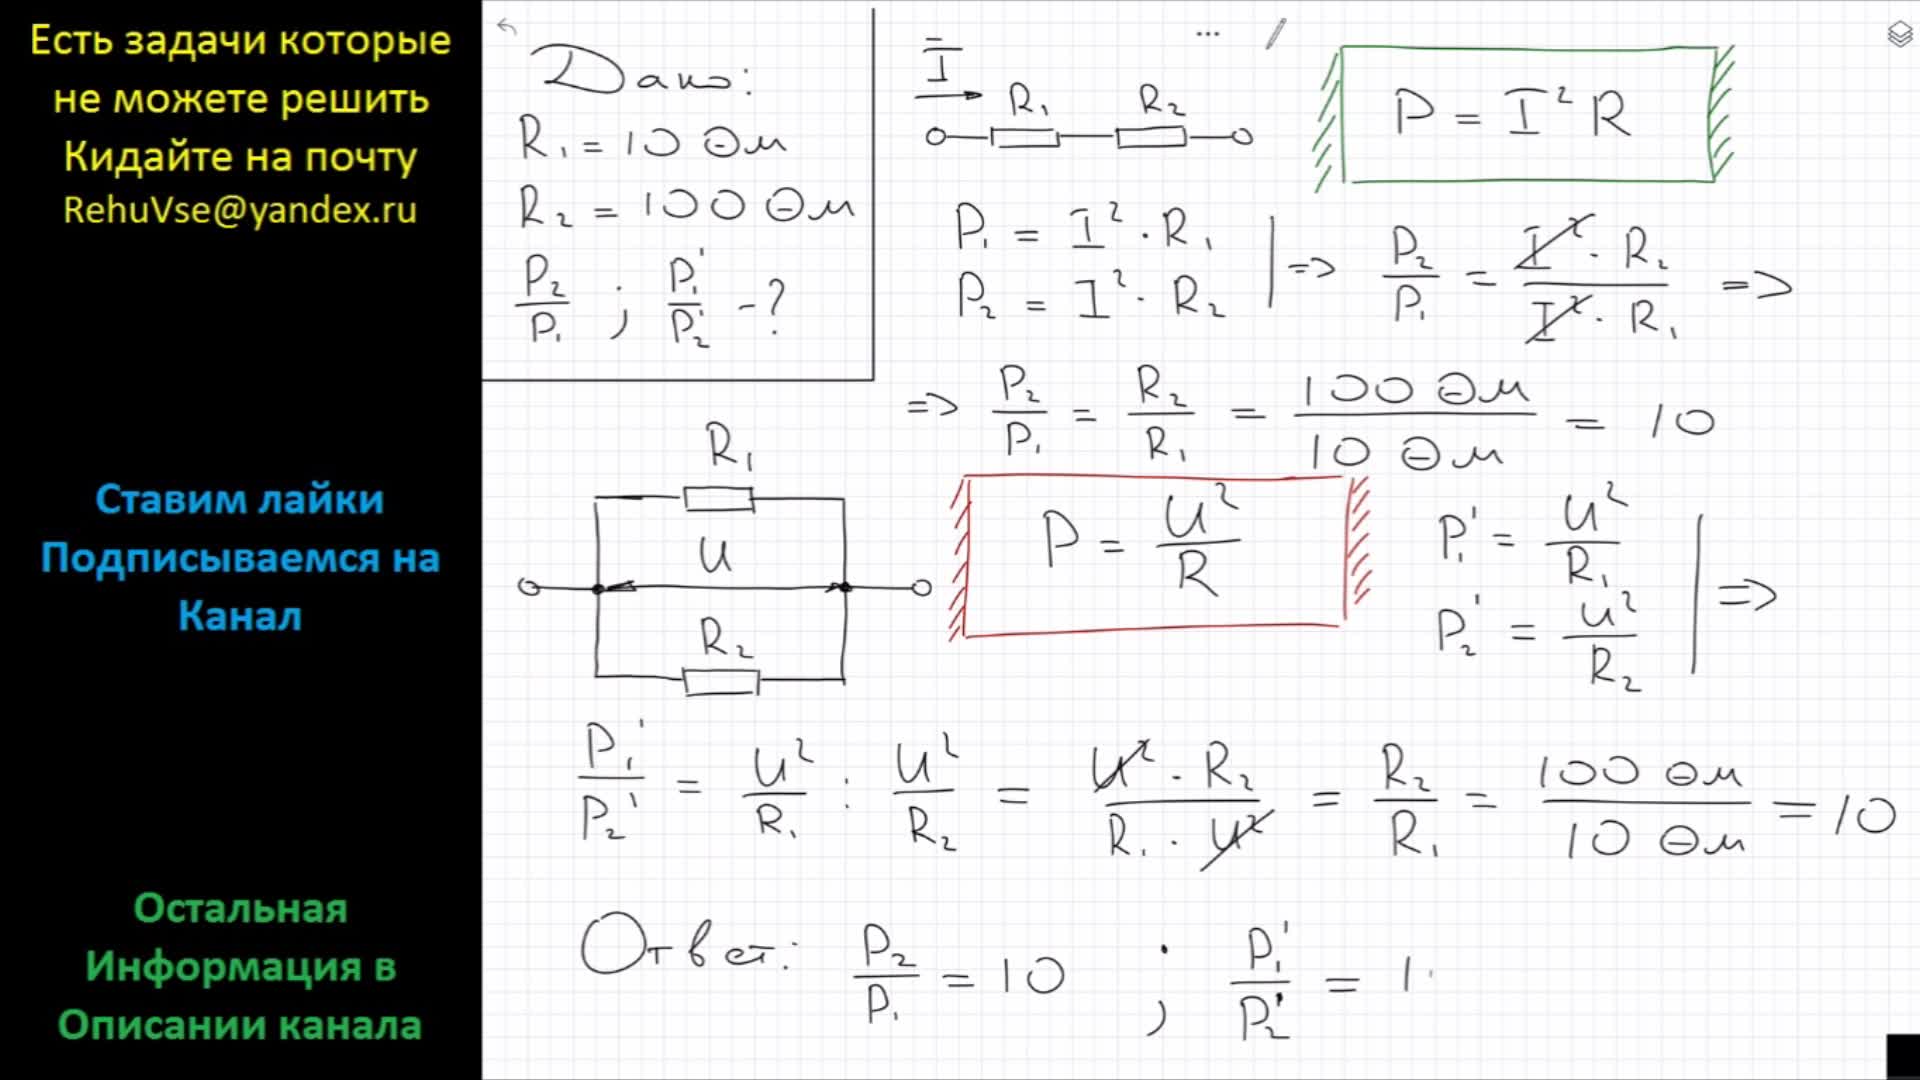 Есть задачи которые
не можете решить
Кидайте на почту
RehuVse@yandex.ru
Ставим лайки
Подписываемся на
Канал
Остальная
Информация в
Описании канала
Дано:
R₁ = 10 Ом
R₂ = 100 Ом
P₂/P₁ ; P₁'/P₂' - ?
I
R₁ R₂
P = I² R
P₁ = I² · R₁
P₂ = I² · R₂
=> P₂/P₁ = I² · R₂ / I² · R₁ =>
=> P₂/P₁ = R₂/R₁ = 100 Ом / 10 Ом = 10
R₁
U
R₂
P = U²/R
P₁' = U²/R₁
P₂' = U²/R₂
=>
P₁'/P₂' = U²/R₁ : U²/R₂ = U² · R₂ / R₁ · U² = R₂/R₁ = 100 Ом / 10 Ом = 10
Ответ: P₂/P₁ = 10 ; P₁'/P₂' = 1